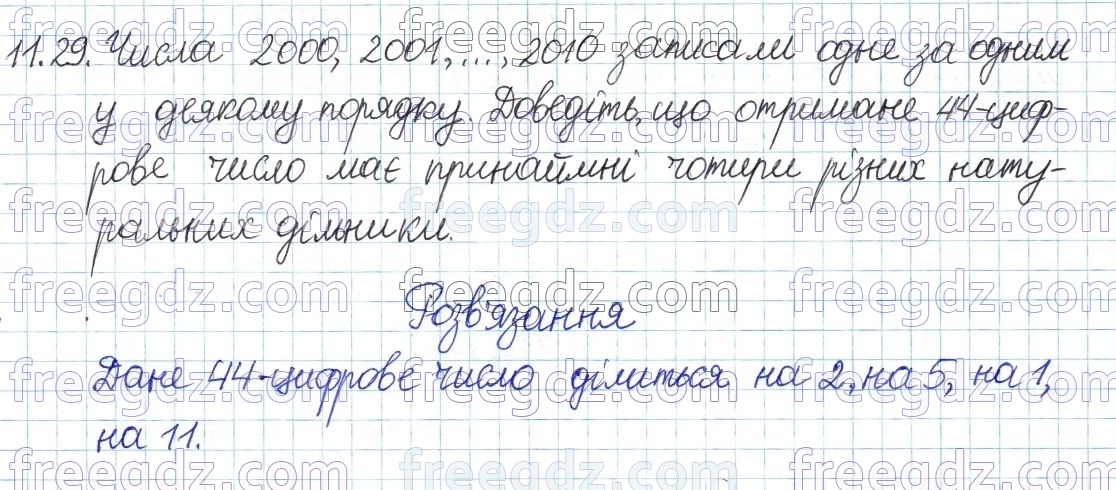 11.29. Числа 2000, 2001, ..., 2010 записали одне за одним
у деякому порядку. Доведіть, що отримане 44-циф-
рове число має принаймні чотири різних нату-
ральних дільники.
Розв'язання
Дане 44-цифрове число ділиться на 2, на 5, на 1,
на 11.
freegdz.com